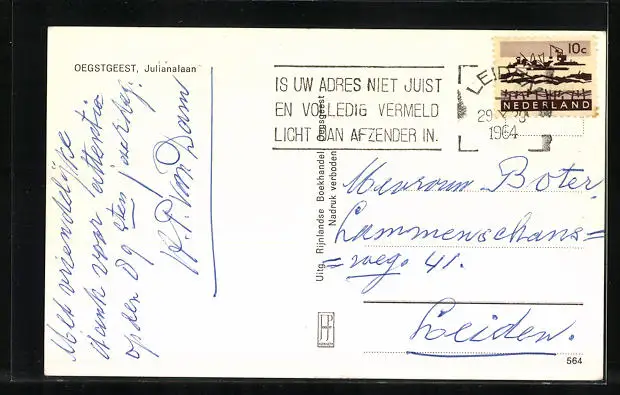 OEGSTGEEST, Julianalaan
Met vriendelijke
dank voor attentie
op den 89 sten jaardag.
H.P. van Dam
Uitg. Rijnlandse Boekhandel, Oegstgeest
Nadruk verboden
IS UW ADRES NIET JUIST
EN VOLLEDIG VERMELD
LICHT DAN AFZENDER IN.
LEIDEN
1964
10c
NEDERLAND
Mevrouw Boter
Lammenschans=
=weg. 41.
Leiden.
564